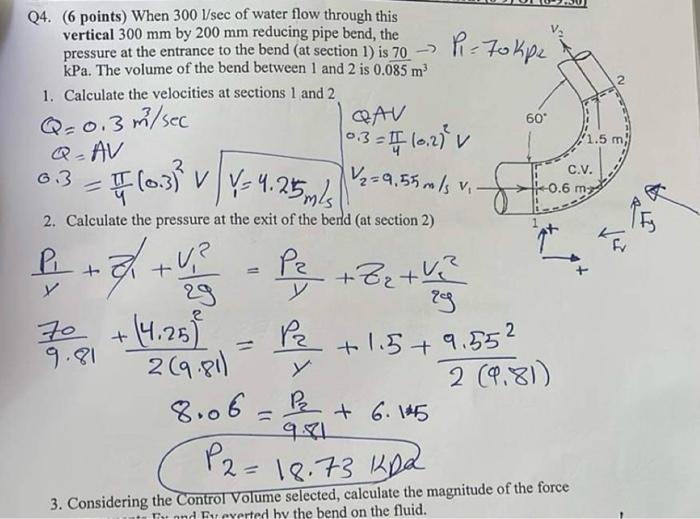 Q4. (6 points) When 300 l/sec of water flow through this
vertical 300 mm by 200 mm reducing pipe bend, the
pressure at the entrance to the bend (at section 1) is 70 → P₁ = 70 kPa
kPa. The volume of the bend between 1 and 2 is 0.085 m³
1. Calculate the velocities at sections 1 and 2
Q = 0.3 m³/sec
Q = AV
0.3 = π/4 (0.3)² V
V₁ = 4.25 m/s
QAV
0.3 = π/4 (0.2)² V
V₂ = 9.55 m/s
V₂
2
60°
1.5 m
C.V.
V₁
0.6 m
1
+
+
Fy
Fx
2. Calculate the pressure at the exit of the bend (at section 2)
P₁/γ + Z₁ + V₁²/2g = P₂/γ + Z₂ + V₂²/2g
70/9.81 + (4.25)²/2(9.81) = P₂/γ + 1.5 + 9.55²/2(9.81)
8.06 = P₂/9.81 + 6.145
P₂ = 18.73 kPa
3. Considering the Control Volume selected, calculate the magnitude of the force
Fx and Fy exerted by the bend on the fluid.